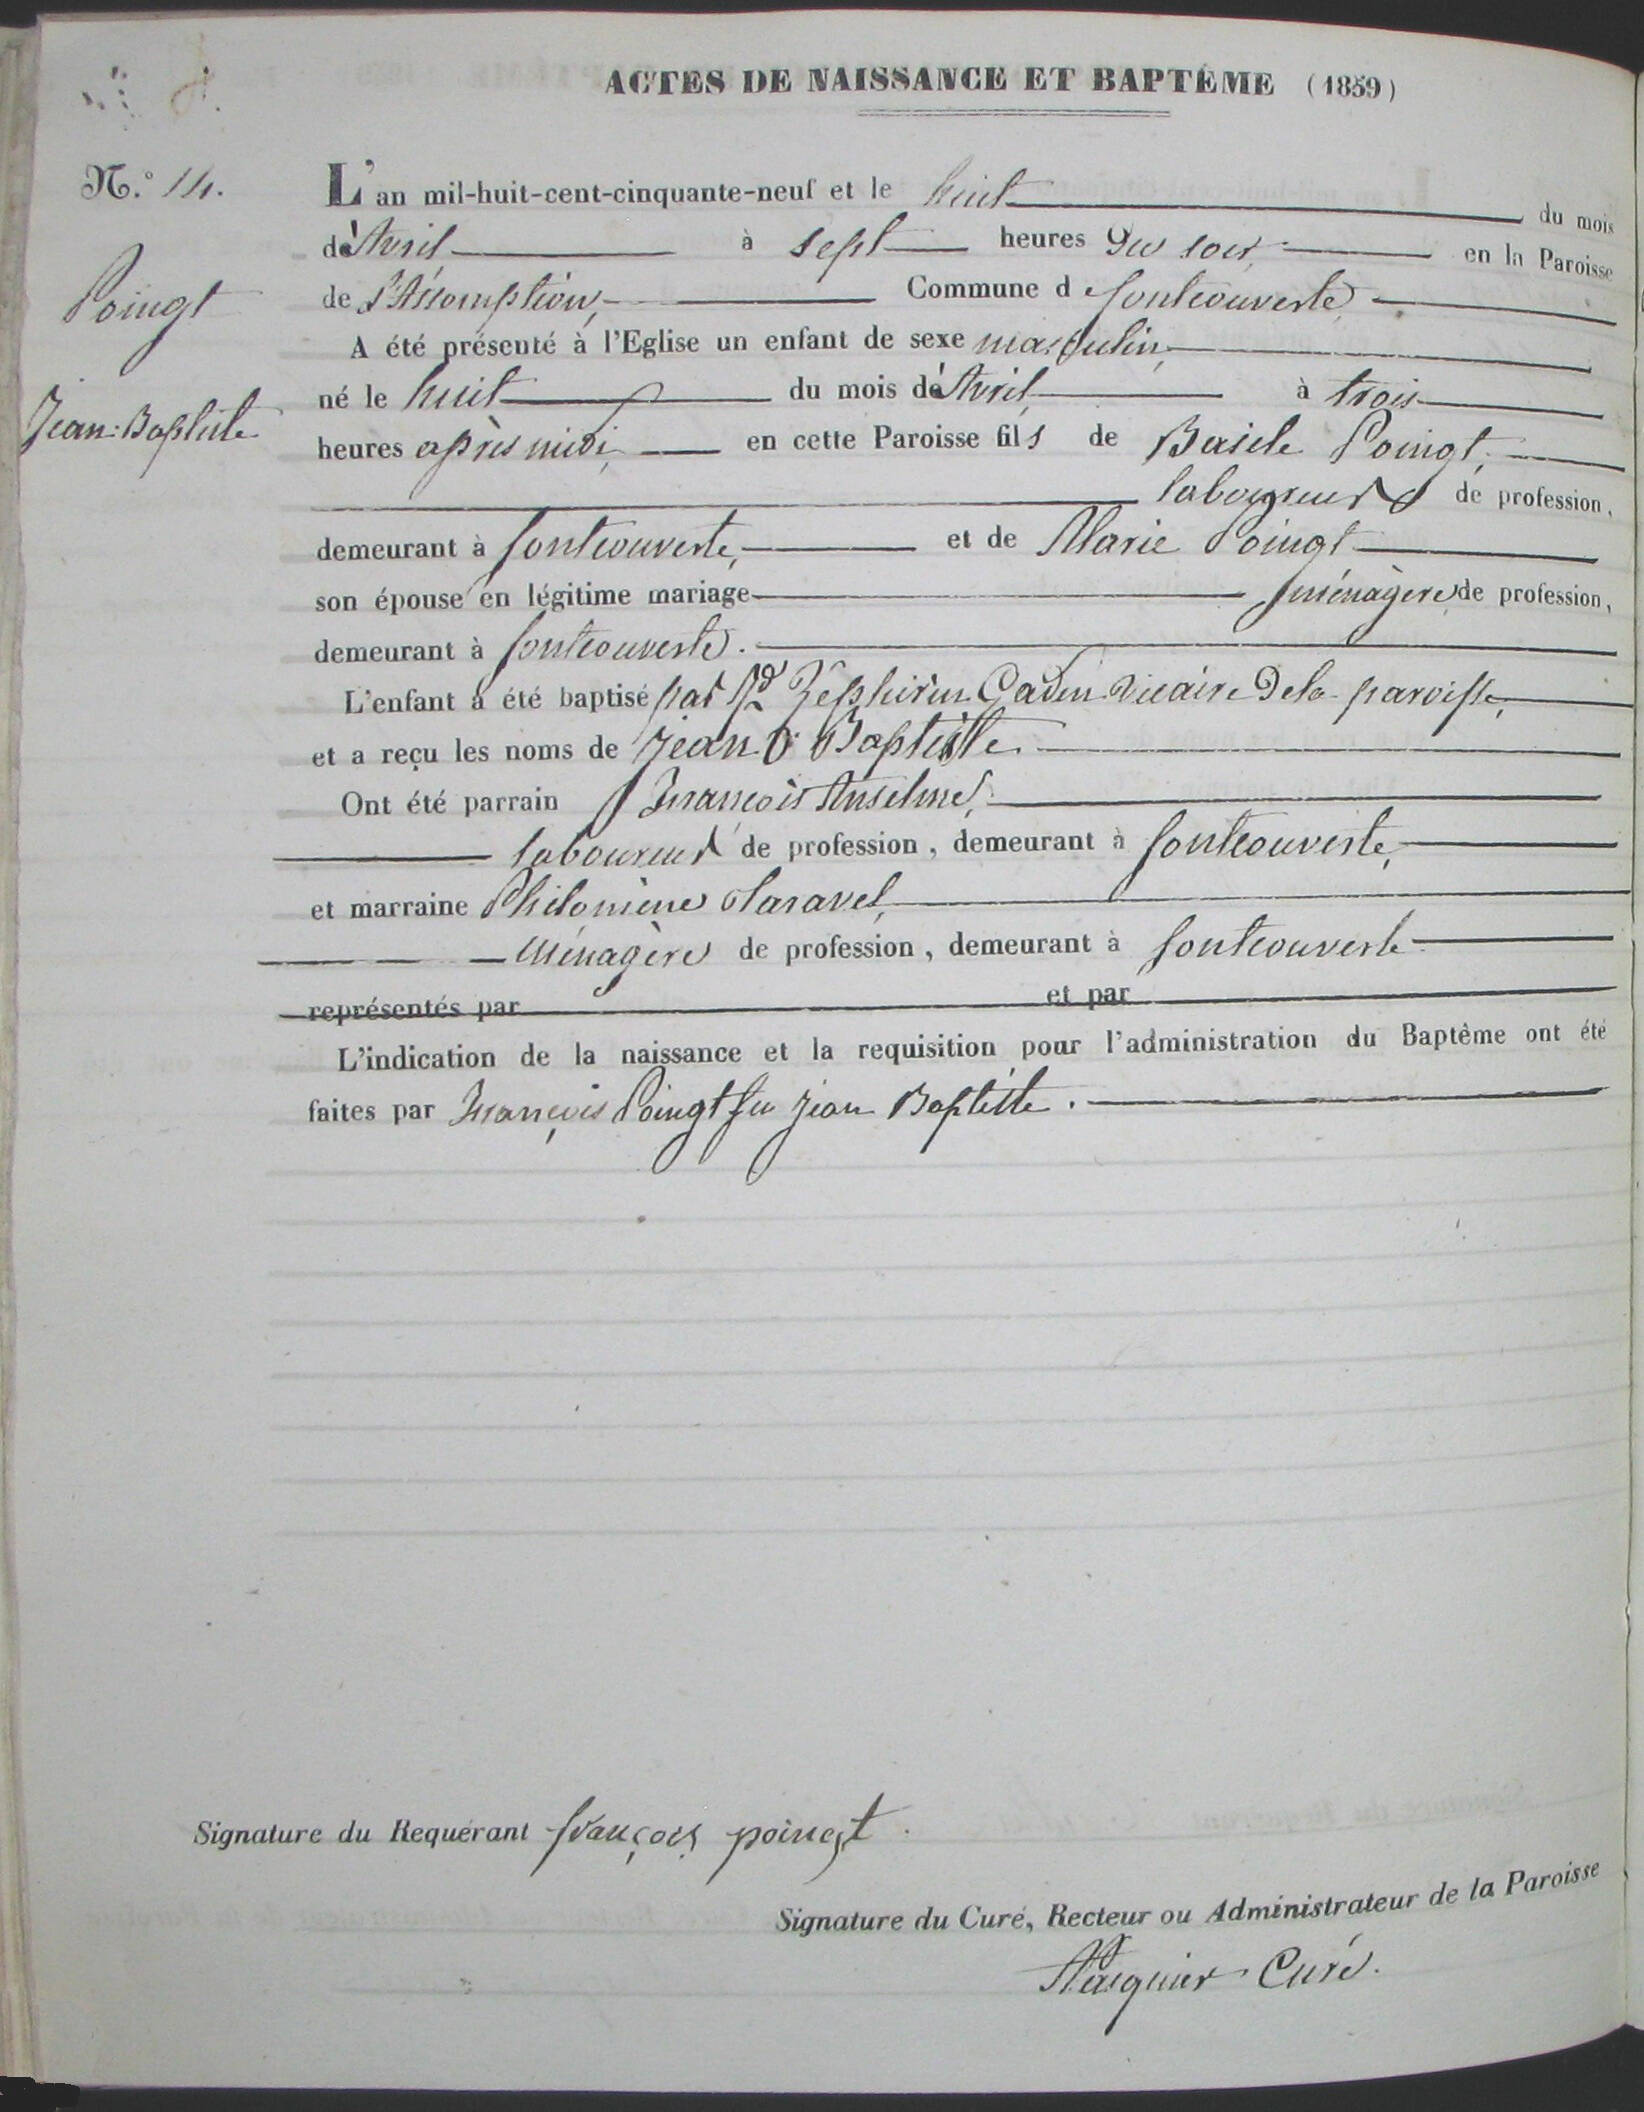 ACTES DE NAISSANCE ET BAPTÊME (1859)
N.° 14.
Poingt
Jean-Baptiste
L'an mil-huit-cent-cinquante-neuf et le huit du mois
d'Avril à sept heures du soir, en la Paroisse
de l'Assomption, Commune de fontcouverte
A été présenté à l'Eglise un enfant de sexe masculin,
né le huit du mois d'Avril, à trois
heures après midi, en cette Paroisse fils de Basile Poingt,
laboureur de profession,
demeurant à fontcouverte, et de Marie Poingt
son épouse en légitime mariage ménagère de profession,
demeurant à fontcouverte.
L'enfant a été baptisé par Rd Zéphirin Gadin vicaire de la paroisse,
et a reçu les noms de Jean Baptiste.
Ont été parrain François Anselme,
laboureur de profession, demeurant à fontcouverte,
et marraine Philomène claravel,
Ménagère de profession, demeurant à fontcouverte
représentés par et par
L'indication de la naissance et la requisition pour l'administration du Baptême ont été
faites par François Poingt feu Jean Baptiste.
Signature du Requérant françois poingt.
Signature du Curé, Recteur ou Administrateur de la Paroisse
Curé.